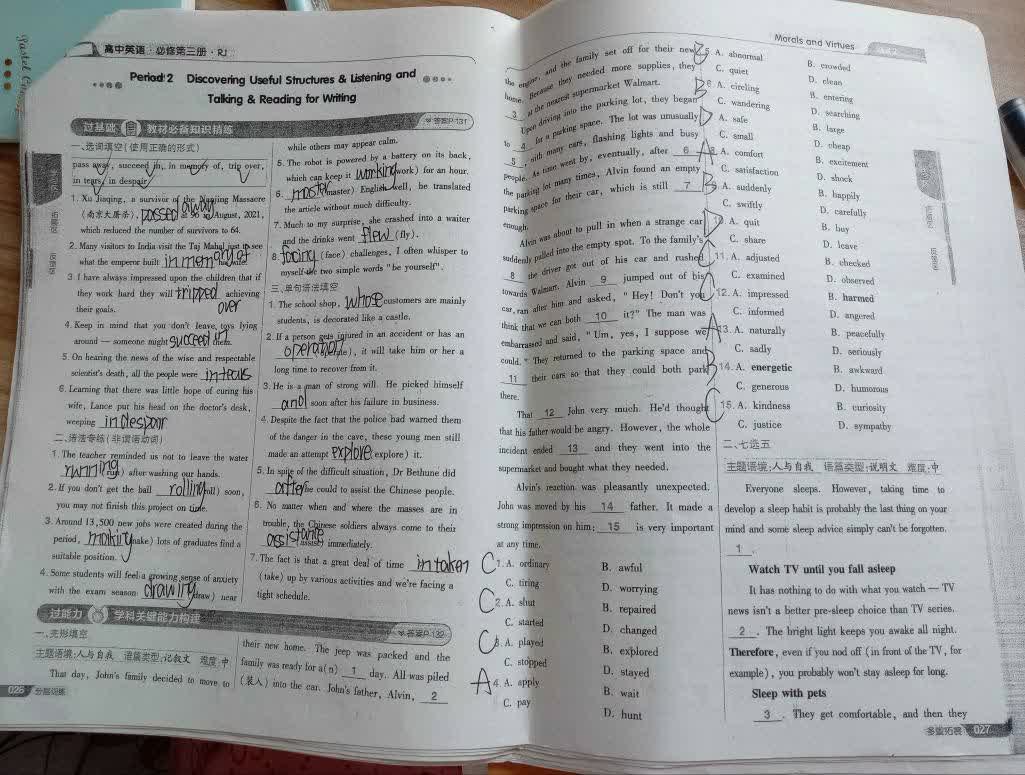 Pastel
高中英语·必修第三册·RJ
Period 2 Discovering Useful Structures & Listening and
Talking & Reading for Writing
过基础 教材必备知识精练
答案P-131
一、选词填空(使用正确的形式)
pass away, succeed in, in memory of, trip over,
in tears, in despair
1. Xu Jiaqing, a survivor of the Nanjing Massacre
(南京大屠杀), passed away at 96 in August, 2021,
which reduced the number of survivors to 64.
2. Many visitors to India visit the Taj Mahal just to see
what the emperor built in memory of
3 I have always impressed upon the children that if
they work hard they will tripped over achieving
their goals.
4. Keep in mind that you don't leave toys lying
around — someone might succeed in them.
5. On hearing the news of the wise and respectable
scientist's death, all the people were in tears
6. Learning that there was little hope of curing his
wife, Lance put his head on the doctor's desk,
weeping in despair
二、语法专练(非谓语动词)
1. The teacher reminded us not to leave the water
running (run) after washing our hands.
2. If you don't get the ball rolling (roll) soon,
you may not finish this project on time.
3. Around 13,500 new jobs were created during the
period, making (make) lots of graduates find a
suitable position.
4. Some students will feel a growing sense of anxiety
with the exam season drawing (draw) near
while others may appear calm.
5. The robot is powered by a battery on its back,
which can keep it working (work) for an hour.
6. master (master) English well, he translated
the article without much difficulty.
7. Much to my surprise, she crashed into a waiter
and the drinks went flew (fly).
8. facing (face) challenges, I often whisper to
myself the two simple words "be yourself".
三、单句语法填空
1. The school shop, whose customers are mainly
students, is decorated like a castle.
2. If a person gets injured in an accident or has an
operation (operate), it will take him or her a
long time to recover from it.
3. He is a man of strong will. He picked himself
and soon after his failure in business.
4. Despite the fact that the police had warned them
of the danger in the cave, these young men still
made an attempt explore (explore) it.
5. In spite of the difficult situation, Dr Bethune did
after he could to assist the Chinese people.
6. No matter when and where the masses are in
trouble, the Chinese soldiers always come to their
assistance (assist) immediately.
7. The fact is that a great deal of time in taken
(take) up by various activities and we're facing a
tight schedule.
过能力 学科关键能力构建
答案P-132
一、完形填空
主题语境:人与自我 语篇类型:记叙文 难度:中
That day, John's family decided to move to
their new home. The jeep was packed and the
family was ready for a(n) 1 day. All was piled
(装人) into the car. John's father, Alvin, 2
026 分层训练
Morals and Virtues
the engine, and the family set off for their new
home. Because they needed more supplies, they
3 at the nearest supermarket Walmart.
Upon driving into the parking lot, they began
to 4 for a parking space. The lot was unusually
5, with many cars, flashing lights and busy
people. As time went by, eventually, after 6
the parking lot many times, Alvin found an empty
parking space for their car, which is still 7
enough.
Alvin was about to pull in when a strange car
suddenly pulled into the empty spot. To the family's
8 the driver got out of his car and rushed
towards Walmart. Alvin 9 jumped out of his
car, ran after him and asked, "Hey! Don't you
think that we can both 10 it?" The man was
embarrassed and said, "Um, yes, I suppose we
could." They returned to the parking space and
11 their cars so that they could both park
there.
That 12 John very much. He'd thought
that his father would be angry. However, the whole
incident ended 13 and they went into the
supermarket and bought what they needed.
Alvin's reaction was pleasantly unexpected.
John was moved by his 14 father. It made a
strong impression on him: 15 is very important
at any time.
C 1. A. ordinary B. awful
C. tiring D. worrying
C 2. A. shut B. repaired
C. started D. changed
C 3. A. played B. explored
C. stopped D. stayed
A 4. A. apply B. wait
C. pay D. hunt
5. A. abnormal B. crowded
C. quiet D. clean
6. A. circling B. entering
C. wandering D. searching
A. safe B. large
C. small D. cheap
A. comfort B. excitement
C. satisfaction D. shock
A. suddenly B. happily
C. swiftly D. carefully
A. quit B. buy
C. share D. leave
11. A. adjusted B. checked
C. examined D. observed
12. A. impressed B. harmed
C. informed D. angered
A 13. A. naturally B. peacefully
C. sadly D. seriously
B 14. A. energetic B. awkward
C. generous D. humorous
C 15. A. kindness B. curiosity
C. justice D. sympathy
二、七选五
主题语境:人与自我 语篇类型:说明文 难度:中
Everyone sleeps. However, taking time to
develop a sleep habit is probably the last thing on your
mind and some sleep advice simply can't be forgotten.
1.
Watch TV until you fall asleep
It has nothing to do with what you watch — TV
news isn't a better pre-sleep choice than TV series.
2. The bright light keeps you awake all night.
Therefore, even if you nod off (in front of the TV, for
example), you probably won't stay asleep for long.
Sleep with pets
3. They get comfortable, and then they
027